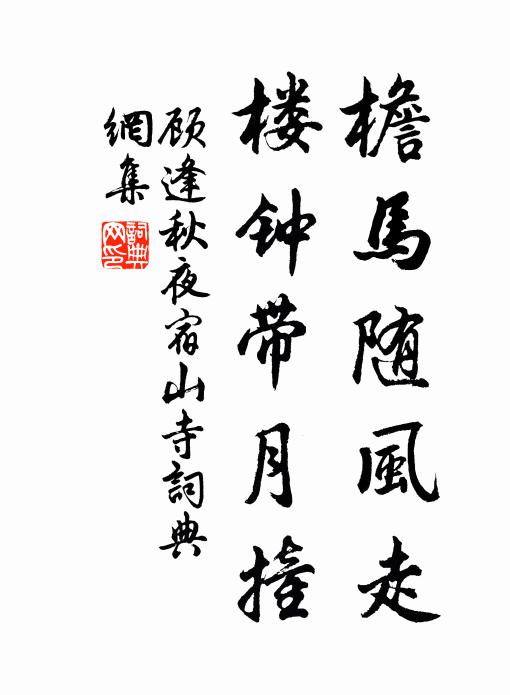 檐馬随風走
楼钟带月撞
顾逢秋夜宿山寺詞典
網集
詞典
网印